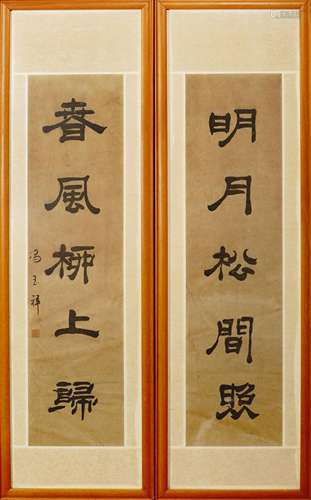 明月松間照
春風柳上歸
馮玉祥